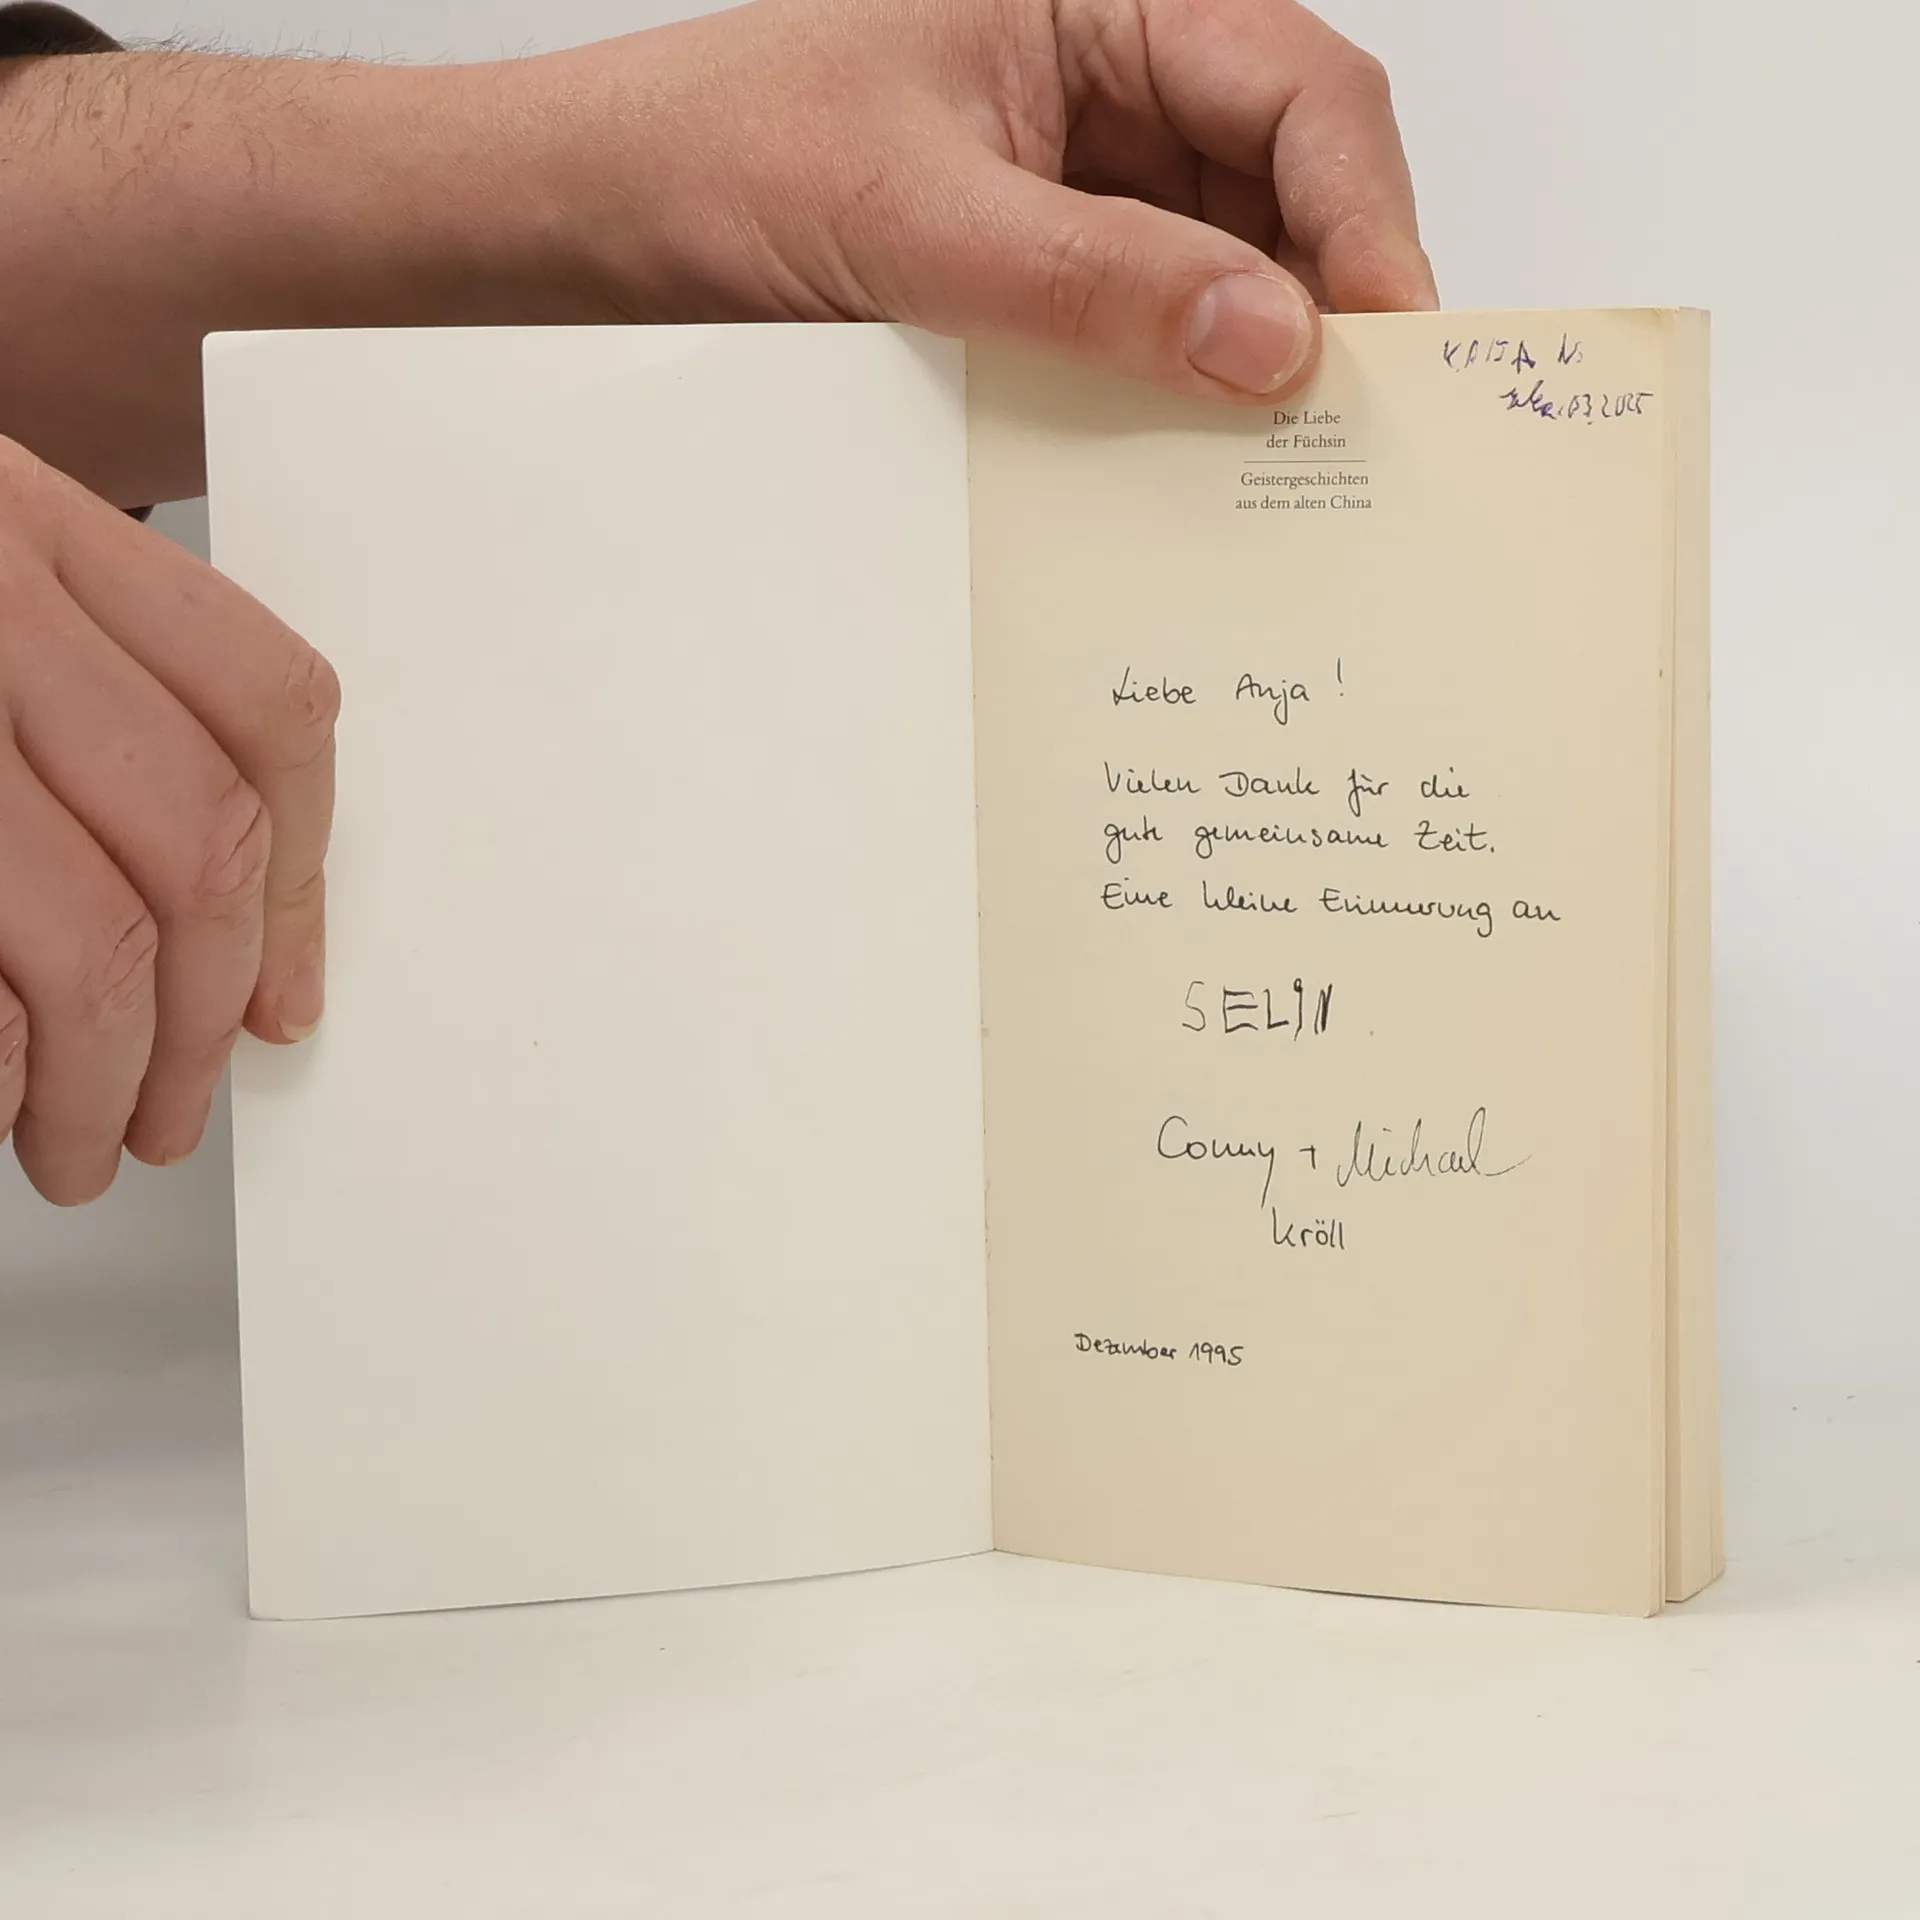 Die Liebe
der Füchsin
Geistergeschichten
aus dem alten China
Liebe Anja!
Vielen Dank für die
gute gemeinsame Zeit.
Eine kleine Erinnerung an
SELIN
Conny + Michael
Kröll
Dezember 1995